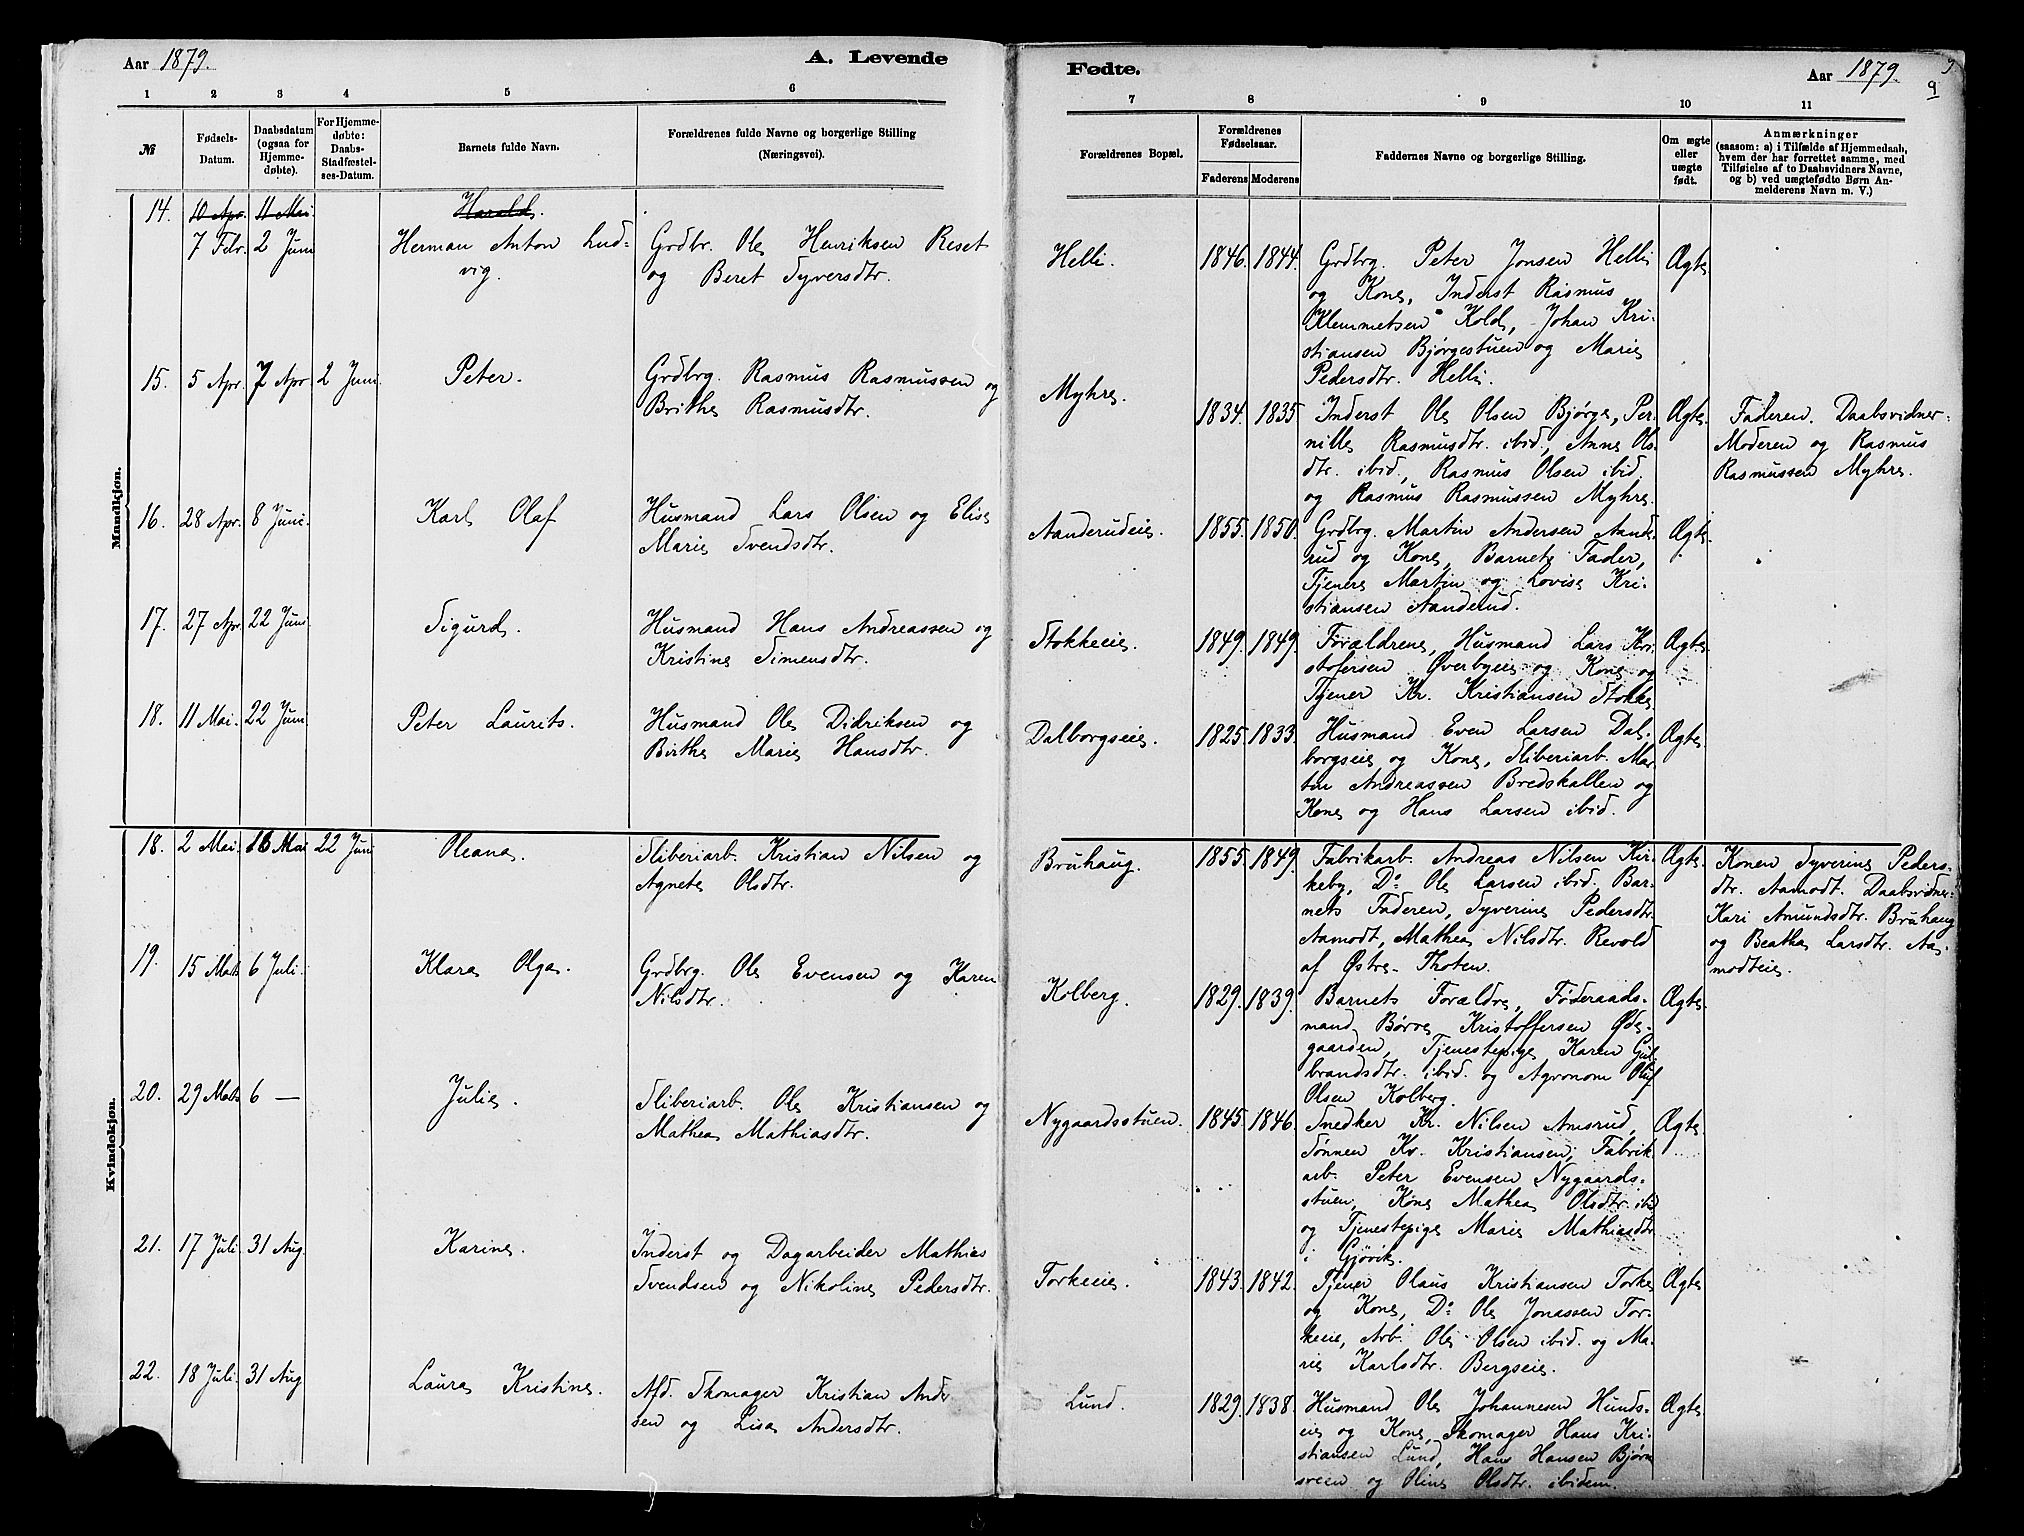 Aar 1879.
A. Levende
1 2 3 4 5 6
№
Fødsels-
Datum.
Daabsdatum
(ogsaa for
Hjemme-
døbte).
For Hjemme-
døbte:
Daabs-
Stadfæstel-
ses-Datum.
Barnets fulde Navn.
Forældrenes fulde Navne og borgerlige Stilling
(Næringsvei).
Mandkjøn.
14. 10 Apr. 11 Mai Harald.
7 Febr. 2 Juni Herman Anton Lud- Grdbr. Ole Henriksen Reset
vig. og Beret Syversdtr.
15. 5 Apr. 7 Apr. 2 Juni Peter. Grdbrg. Rasmus Rasmussen og
Brithe Rasmusdtr.
16. 28 Apr. 8 Juni. Karl Olaf Husmand Lars Olsen og Elise
Marie Svendsdtr.
17. 27 Apr. 22 Juni Sigurd. Husmand Hans Andreassen og
Kristine Simensdtr.
18. 11 Mai. 22 Juni Peter Laurits. Husmand Ole Didriksen og
Birthe Marie Hansdtr.
Kvindekjøn.
18. 2 Mai. 16 Mai 22 Juni Oleana. Sliberiarb. Kristian Nilsen og
Agnete Olsdtr.
19. 15 Marts 6 Juli. Klara Olga. Grdbrg. Ole Evensen og Karen
Nilsdtr.
20. 29 Marts 6 — Julie. Sliberiarb. Ole Kristiansen og
Mathea Mathiasdtr.
21. 17 Juli. 31 Aug. Karine. Inderst og Dagarbeider Mathias
Svendsen og Nikoline Pedersdtr.
22. 18 Juli. 31 Aug Laura Kristine. Afd. Skomager Kristian Ander-
sen og Lisa Andersdtr.
Fødte.
Aar 1879.
9
7 8 9 10 11
Forældrenes Bopæl.
Forældrenes
Fødselsaar.
Faderens Moderens
Faddernes Navne og borgerlige Stilling.
Om ægte
eller
uægte
født.
Anmærkninger
(saasom: a) i Tilfælde af Hjemmedaab,
hvem der har forrettet samme, med
Tilføielse af to Daabsvidners Navne,
og b) ved uægtefødte Børn An-
melderens Navn m. V.)
Helli. 1846. 1844. Grdbrg. Peter Jonsen Helli Ægte
og Kone, Inderst Rasmus
Klemmetsen Kold, Johan Kri-
stiansen Bjørgestuen og Marie
Pedersdtr. Helli.
Myhre. 1834. 1835 Inderst Ole Olsen Bjørge, Per- Ægte. Faderen. Daabsvidner-
nille Rasmusdtr. ibid., Anne Ols- Moderen og Rasmus
dtr. ibid., Rasmus Olsen ibid Rasmussen Myhre.
og Rasmus Rasmussen Myhre.
Aanderudeie. 1855. 1850. Grdbrg. Martin Andersen Aande- Ægte.
rud og Kone, Barnets Fader,
Tjenere Martin og Lovise Kri-
stiansen Aanderud.
Stokkeeie. 1849. 1849. Forældrene, Husmand Lars Kri- Ægte.
stofersen Øverbyeie og Kone og
Tjener Kr. Kristiansen Stokke
Dalborgseie. 1825. 1833. Husmand Even Larsen Dal- Ægte.
borgseie og Kone, Sliberiarb. Mar-
tin Andreassen Bredskallen og
Kone og Hans Larsen ibid.
Bruhaug. 1855. 1849. Fabrikarb. Andreas Nilsen Kir- Ægte. Konen Syverine Peders-
keby, Do Ole Larsen ibid. Bar- dtr. Aamodt. Daabsvidner-
nets Faderen, Syverine Pedersdtr. Kari Amundsdtr. Bruhaug
Aamodt, Mathea Nilsdtr. Revold og Beathe Larsdtr. Aa-
af Østre Thoten. modteie.
Kolberg. 1829. 1839. Barnets Forældre, Føderaads- Ægte.
mand Børre Kristoffersen Øde-
gaarden, Tjenestepige Karen Gul-
brandsdtr. ibid. og Agronom Oluf
Olsen Kolberg.
Nygaardsstuen. 1845. 1846. Snedker Kr. Nilsen Amsrud, Ægte
Sønnen Kr. Kristiansen, Fabrik-
arb. Peter Evensen Nygaards-
stuen, Kone Mathea Olsdtr. ibid
og Tjenestepige Marie Mathiasdtr
i Gjøvik.
Torkeeie. 1843. 1842. Tjener Olaus Kristiansen Torke Ægte
og Kone, Do Ole Jonassen Tor-
keeie, Arb. Ole Olsen ibid. og Ma-
rie Karlsdtr. Bergseie.
Lund. 1829. 1838. Husmand Ole Johannesen Hunds- Ægte
eie og Kone, Skomager Hans Kri-
stiansen Lund, Hans Hansen Bjørn-
sveen og Oline Olsdtr. ibidem.